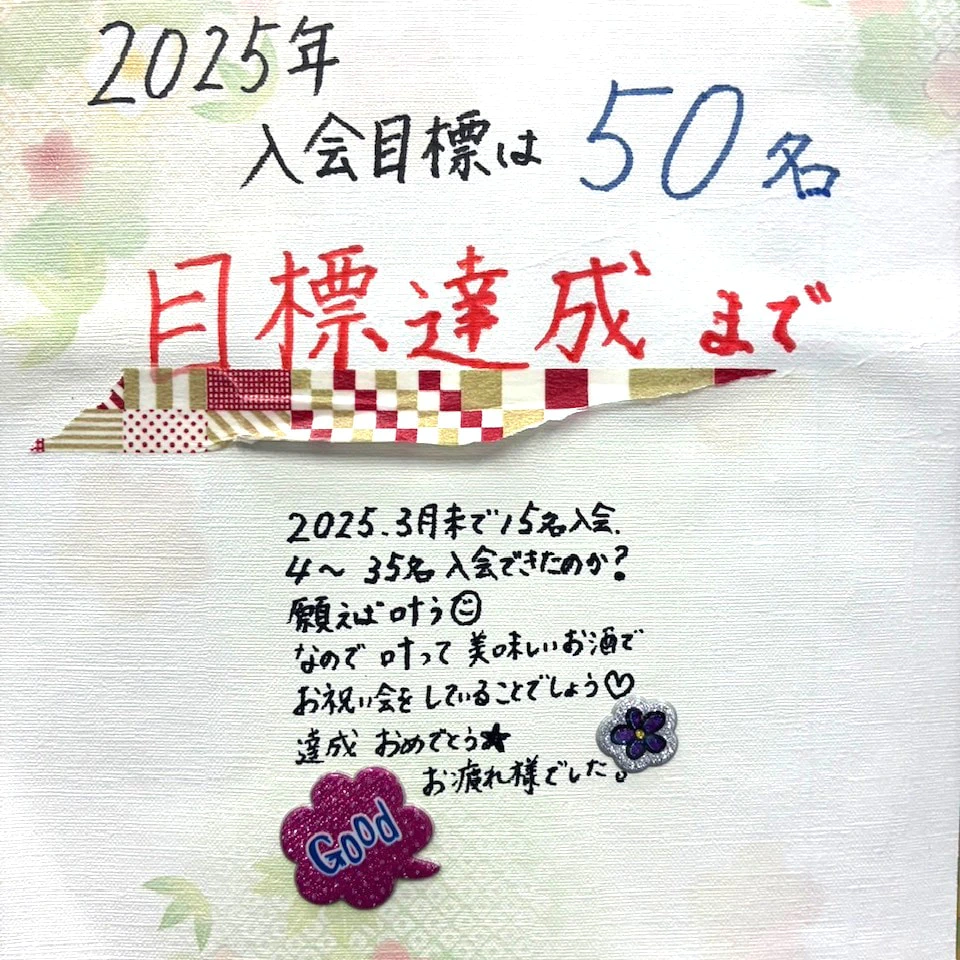 2025年
入会目標は 50名
目標達成まで
2025.3月末で15名入会.
4～ 35名入会できたのか?
願えば叶う☺
なので 叶って 美味しいお酒で
お祝い会をしていることでしょう♡
達成 おめでとう★
お疲れ様でした。
Good